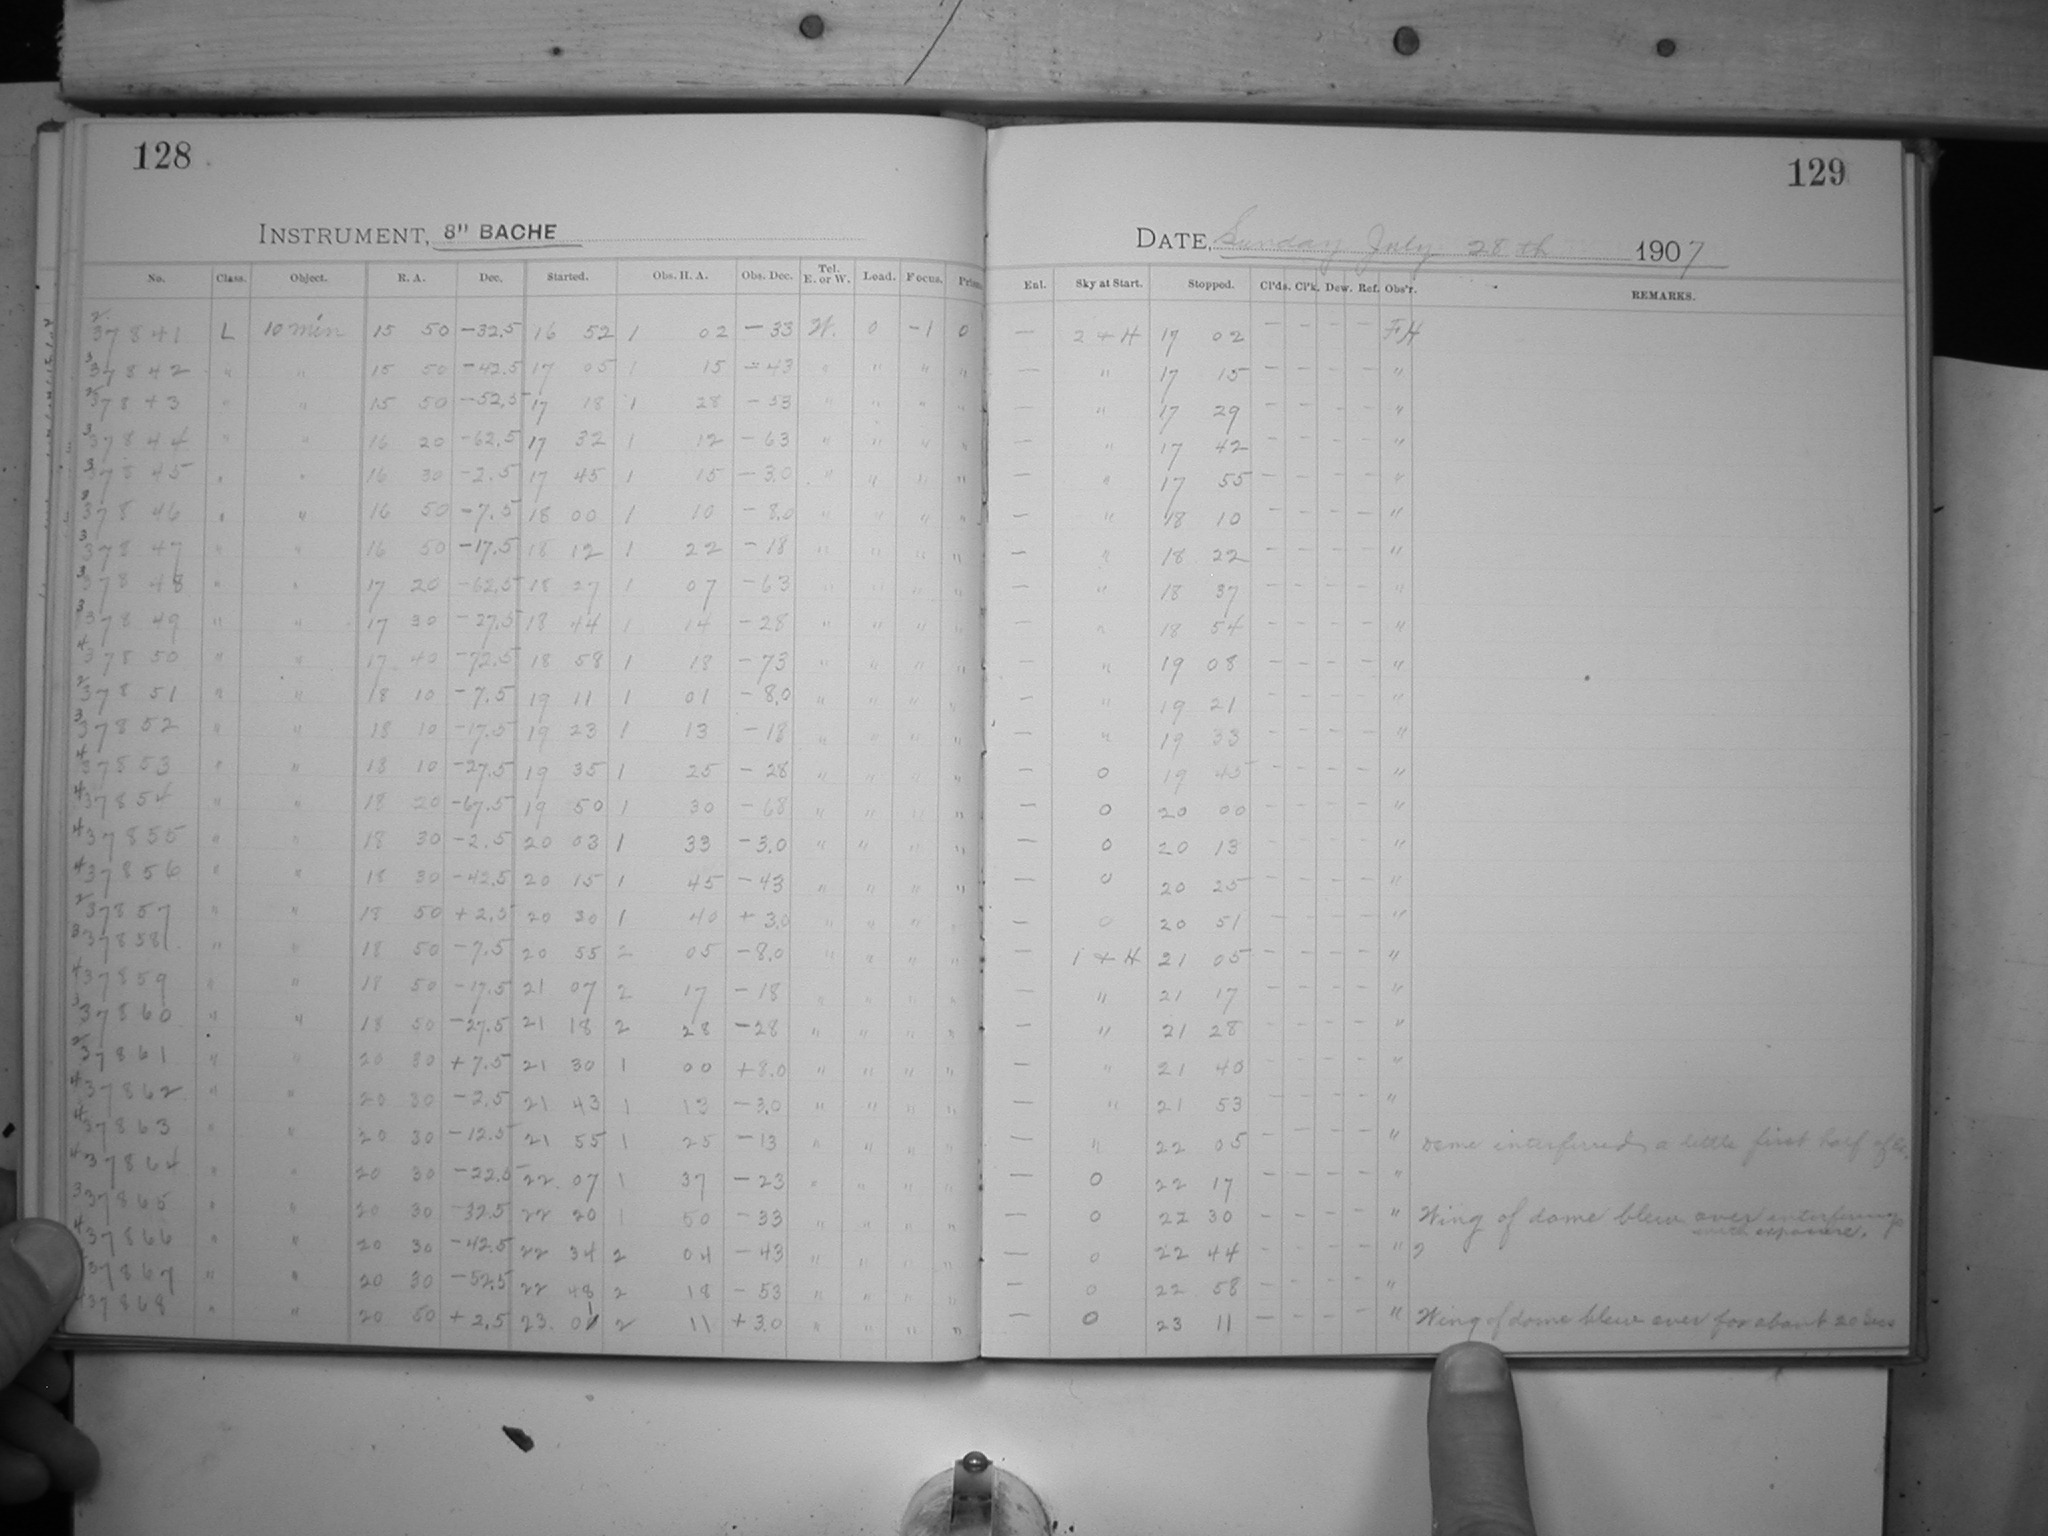 128
INSTRUMENT, 8" BACHE
No. Class. Object. R. A. Dec. Started. Obs. H. A. Obs. Dec. Tel. E. or W. Load. Focus. Prism
2 37841 L 10 min 15 50 -32.5 16 52 1 02 -33 W. 0 -1 0
3 37842 " " 15 50 -42.5 17 05 1 15 -43 " " " "
2 37843 " " 15 50 -52.5 17 18 1 28 -53 " " " "
3 37844 " " 16 20 -62.5 17 32 1 12 -63 " " " "
3 37845 " " 16 30 -2.5 17 45 1 15 -3.0 " " " "
37846 " " 16 50 -7.5 18 00 1 10 -8.0 " " " "
3 37847 " " 16 50 -17.5 18 12 1 22 -18 " " " "
3 37848 " " 17 20 -62.5 18 27 1 07 -63 " " " "
3 37849 " " 17 30 -27.5 18 44 1 14 -28 " " " "
4 37850 " " 17 40 -72.5 18 58 1 18 -73 " " " "
2 37851 " " 18 10 -7.5 19 11 1 01 -8.0 " " " "
3 37852 " " 18 10 -17.5 19 23 1 13 -18 " " " "
4 37853 " " 18 10 -27.5 19 35 1 25 -28 " " " "
4 37854 " " 18 20 -67.5 19 50 1 30 -68 " " " "
4 37855 " " 18 30 -2.5 20 03 1 33 -3.0 " " " "
4 37856 " " 18 30 -42.5 20 15 1 45 -43 " " " "
2 37857 " " 18 50 +2.5 20 30 1 40 +3.0 " " " "
3 37858 " " 18 50 -7.5 20 55 2 05 -8.0 " " " "
4 37859 " " 18 50 -17.5 21 07 2 17 -18 " " " "
3 37860 " " 18 50 -27.5 21 18 2 28 -28 " " " "
2 37861 " " 20 30 +7.5 21 30 1 00 +8.0 " " " "
4 37862 " " 20 30 -2.5 21 43 1 13 -3.0 " " " "
4 37863 " " 20 30 -12.5 21 55 1 25 -13 " " " "
4 37864 " " 20 30 -22.5 22 07 1 37 -23 " " " "
3 37865 " " 20 30 -32.5 22 20 1 50 -33 " " " "
4 37866 " " 20 30 -42.5 22 34 2 04 -43 " " " "
37867 " " 20 30 -52.5 22 48 2 18 -53 " " " "
4 37868 " " 20 50 +2.5 23 01 2 11 +3.0 " " " "
129
DATE, Sunday July 28th 1907
Enl. Sky at Start. Stopped. Cl'ds. Cl'k. Dew. Ref. Obs'r. REMARKS.
— 2 + H 17 02 – – – – F H
— " 17 15 – – – – "
— " 17 29 – – – – "
— " 17 42 – – – – "
— " 17 55 – – – – "
— " 18 10 – – – – "
— " 18 22 – – – – "
— " 18 37 – – – – "
— " 18 54 – – – – "
— " 19 08 – – – – "
— " 19 21 – – – – "
— " 19 33 – – – – "
— 0 19 45 – – – – "
— 0 20 00 – – – – "
— 0 20 13 – – – – "
— 0 20 25 – – – – "
— 0 20 51 – – – – "
— 1 + H 21 05 – – – – "
— " 21 17 – – – – "
— " 21 28 – – – – "
— " 21 40 – – – – "
— " 21 53 – – – – "
— " 22 05 – – – – " Dome interfered a little first half of
— 0 22 17 – – – – "
— 0 22 30 – – – – " Wing of dome blew over interfering
with exposure.
— 0 22 44 – – – – " ?
— 0 22 58 – – – – "
— 0 23 11 – – – – " Wing of dome blew over for about 20 secs